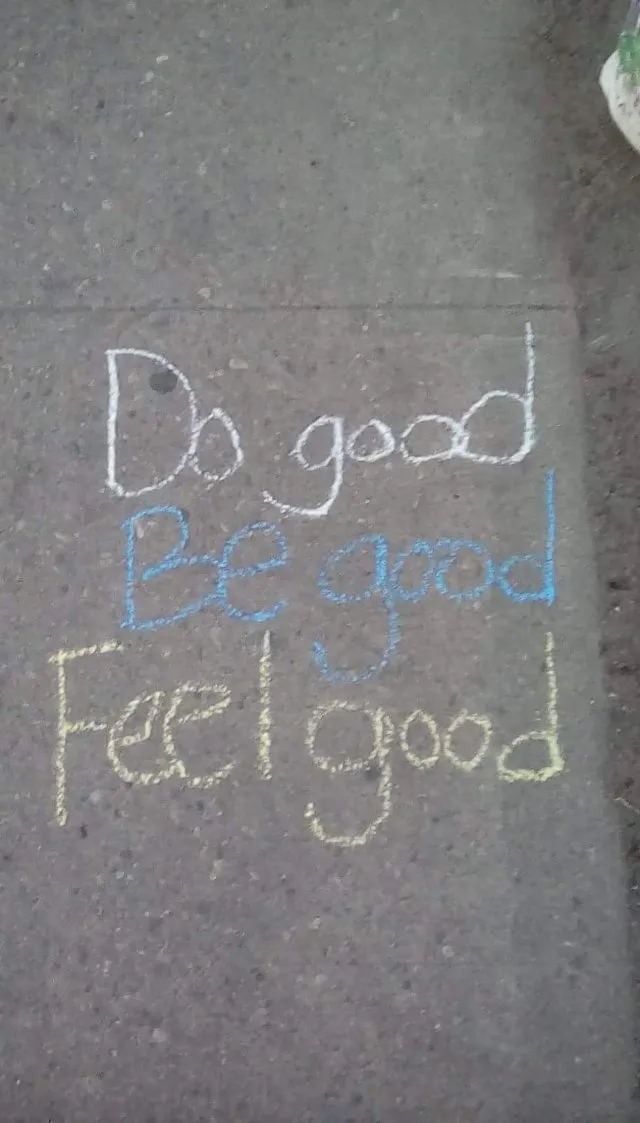 Do good
Be good
Feel good